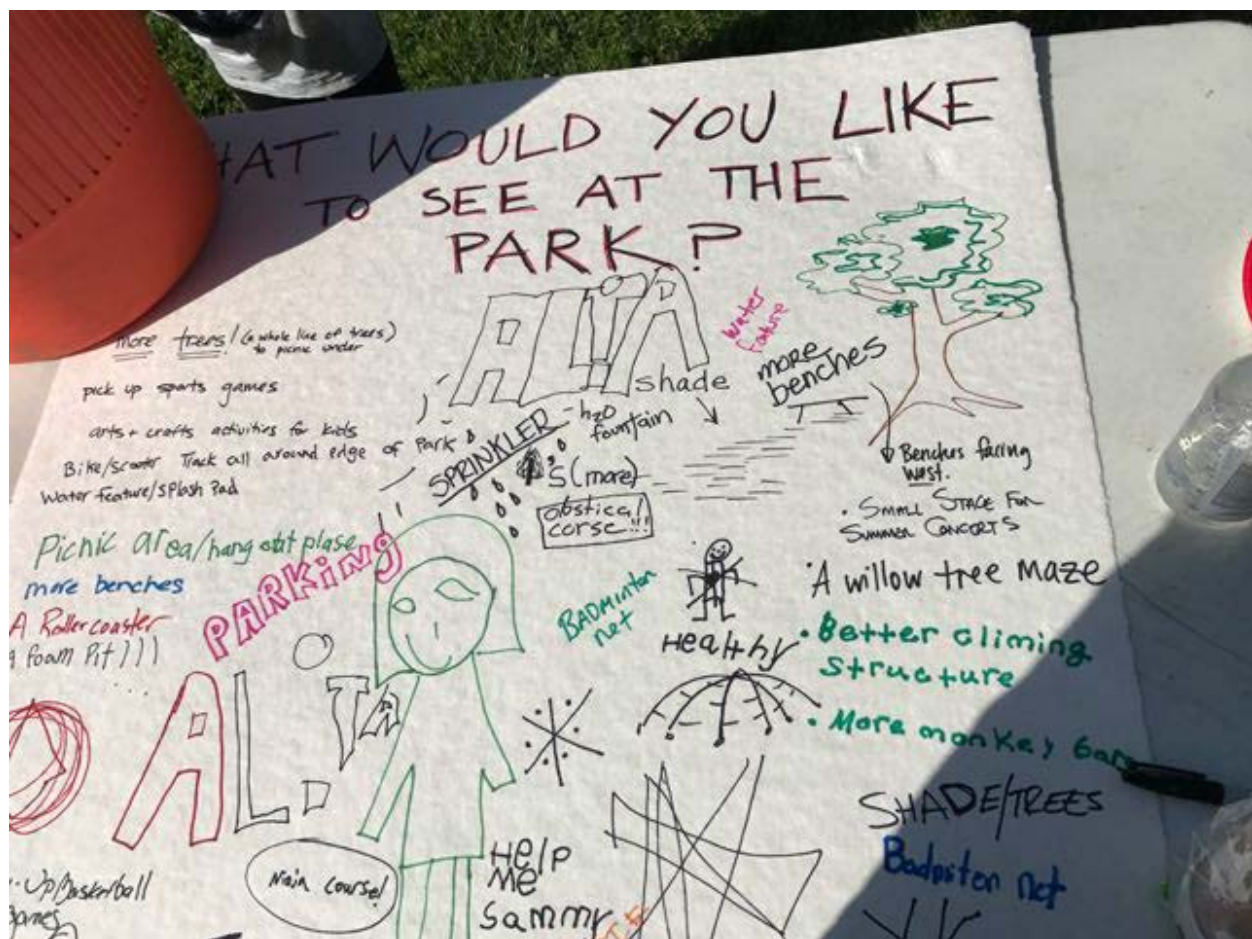 HAT WOULD YOU LIKE
TO SEE AT THE
PARK?
more trees! (a whole line of trees)
to picnic under
pick up sports games
arts + crafts activities for kids
Bike/scooter Track all around edge of Park
Water feature/splash Pad
Picnic area/hang out plase
more benches
A Rollercoaster
a Foam Pit!!!
PARKING
ALTA
shade
SPRINKLER
's (more)
h2o
fountain
obstical
corse!!!
Water
more
benches
Benches facing
west.
• Small Stage For
Summer Concerts
• A willow tree maze
• Better climing
structure
• More monkey bars
BADminton
net
Healthy
SHADE/TREES
Badmiton net
ALTA
Main Course!
Help
Me
Sammy
-Up Basketball
games